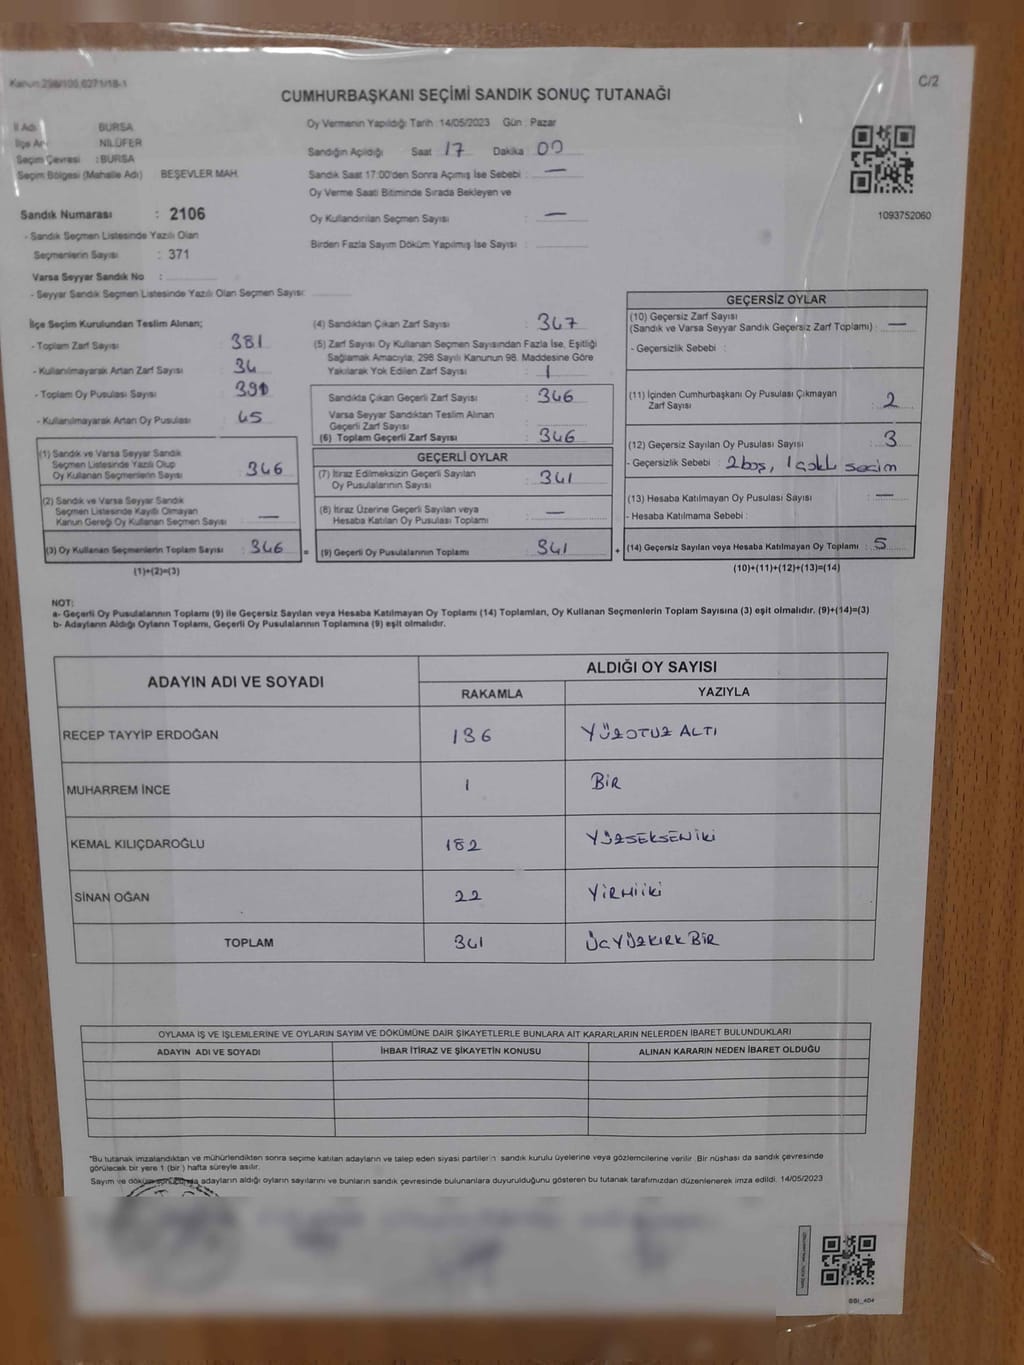 Kanun:298/105,6271/18-1
C/2
CUMHURBAŞKANI SEÇİMİ SANDIK SONUÇ TUTANAĞI
İl Adı BURSA
İlçe Adı NİLÜFER
Seçim Çevresi : BURSA
Seçim Bölgesi (Mahalle Adı) BEŞEVLER MAH.
Sandık Numarası : 2106
- Sandık Seçmen Listesinde Yazılı Olan
Seçmenlerin Sayısı : 371
Varsa Seyyar Sandık No :
- Seyyar Sandık Seçmen Listesinde Yazılı Olan Seçmen Sayısı:
Oy Vermenin Yapıldığı Tarih : 14/05/2023 Gün : Pazar
Sandığın Açıldığı Saat 17 Dakika 00
Sandık Saat 17:00'den Sonra Açımış İse Sebebi : —
Oy Verme Saati Bitiminde Sırada Bekleyen ve
Oy Kullandırılan Seçmen Sayısı : —
Birden Fazla Sayım Döküm Yapılmış İse Sayısı :
1093752060
İlçe Seçim Kurulundan Teslim Alınan;
- Toplam Zarf Sayısı : 381
- Kullanılmayarak Artan Zarf Sayısı : 34
- Toplam Oy Pusulası Sayısı : 390
- Kullanılmayarak Artan Oy Pusulası : 45
(1) Sandık ve Varsa Seyyar Sandık
Seçmen Listesinde Yazılı Olup
Oy Kullanan Seçmenlerin Sayısı : 346
(2) Sandık ve Varsa Seyyar Sandık
Seçmen Listesinde Kayıtlı Olmayan
Kanun Gereği Oy Kullanan Seçmen Sayısı : —
(3) Oy Kullanan Seçmenlerin Toplam Sayısı : 346
(1)+(2)=(3)
=
(4) Sandıktan Çıkan Zarf Sayısı : 347
(5) Zarf Sayısı Oy Kullanan Seçmen Sayısından Fazla İse, Eşitliği
Sağlamak Amacıyla, 298 Sayılı Kanunun 98. Maddesine Göre
Yakılarak Yok Edilen Zarf Sayısı : 1
Sandıkta Çıkan Geçerli Zarf Sayısı : 346
Varsa Seyyar Sandıktan Teslim Alınan
Geçerli Zarf Sayısı :
(6) Toplam Geçerli Zarf Sayısı : 346
GEÇERLİ OYLAR
(7) İtiraz Edilmeksizin Geçerli Sayılan
Oy Pusulalarının Sayısı : 341
(8) İtiraz Üzerine Geçerli Sayılan veya
Hesaba Katılan Oy Pusulası Toplamı : —
(9) Geçerli Oy Pusulalarının Toplamı : 341
+
GEÇERSİZ OYLAR
(10) Geçersiz Zarf Sayısı
(Sandık ve Varsa Seyyar Sandık Geçersiz Zarf Toplamı) : —
- Geçersizlik Sebebi :
(11) İçinden Cumhurbaşkanı Oy Pusulası Çıkmayan
Zarf Sayısı : 2
(12) Geçersiz Sayılan Oy Pusulası Sayısı : 3
- Geçersizlik Sebebi : 2 boş, 1 çoklu seçim
(13) Hesaba Katılmayan Oy Pusulası Sayısı : —
- Hesaba Katılmama Sebebi :
(14) Geçersiz Sayılan veya Hesaba Katılmayan Oy Toplamı : 5
(10)+(11)+(12)+(13)=(14)
NOT:
a- Geçerli Oy Pusulalarının Toplamı (9) ile Geçersiz Sayılan veya Hesaba Katılmayan Oy Toplamı (14) Toplamları, Oy Kullanan Seçmenlerin Toplam Sayısına (3) eşit olmalıdır. (9)+(14)=(3)
b- Adayların Aldığı Oyların Toplamı, Geçerli Oy Pusulalarının Toplamına (9) eşit olmalıdır.
ADAYIN ADI VE SOYADI
ALDIĞI OY SAYISI
RAKAMLA YAZIYLA
RECEP TAYYİP ERDOĞAN 136 YÜZOTUZ ALTI
MUHARREM İNCE 1 BİR
KEMAL KILIÇDAROĞLU 182 YÜZSEKSENİKİ
SİNAN OĞAN 22 YİRMİİKİ
TOPLAM 341 ÜÇYÜZKIRKBİR
OYLAMA İŞ VE İŞLEMLERİNE VE OYLARIN SAYIM VE DÖKÜMÜNE DAİR ŞİKAYETLERLE BUNLARA AİT KARARLARIN NELERDEN İBARET BULUNDUKLARI
ADAYIN ADI VE SOYADI İHBAR İTİRAZ VE ŞİKAYETİN KONUSU ALINAN KARARIN NEDEN İBARET OLDUĞU
*Bu tutanak imzalandıktan ve mühürlendikten sonra seçime katılan adayların ve talep eden siyasi partilerin sandık kurulu üyelerine veya gözlemcilerine verilir. Bir nüshası da sandık çevresinde
görülecek bir yere 1 (bir) hafta süreyle asılır.
Sayım ve döküm sonucunda adayların aldığı oyların sayılarını ve bunların sandık çevresinde bulunanlara duyurulduğunu gösteren bu tutanak tarafımızdan düzenlenerek imza edildi. 14/05/2023